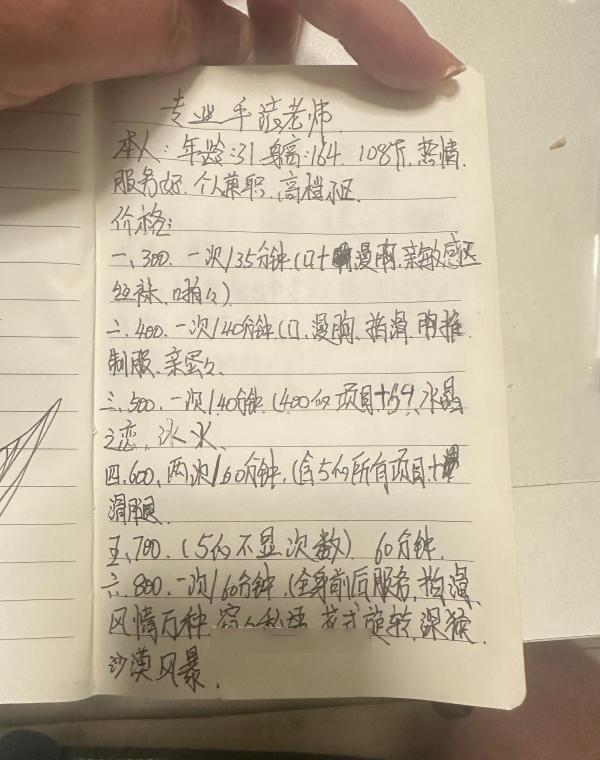 专业手法老师
本人:年龄:31 身高:164. 108斤,热情.
服务好.个人兼职.高档小区.
价格:
一、300.一次/35分钟(口+漫胸.亲敏感区
丝袜、啪々)
二、400.一次/40分钟(口、漫胸、指滑.胸推
制服、亲蛋々.
三、500.一次/40分钟(400的项目+69、水晶
之恋.冰火、
四.600、两次/60分钟,(含5的所有项目+
滑腿.
五、700.(5的不显次数) 60分钟.
六、800、一次/60分钟(全身前后服务.指滑
风情万种. 花式旋转.深猴.
沙漠风暴.